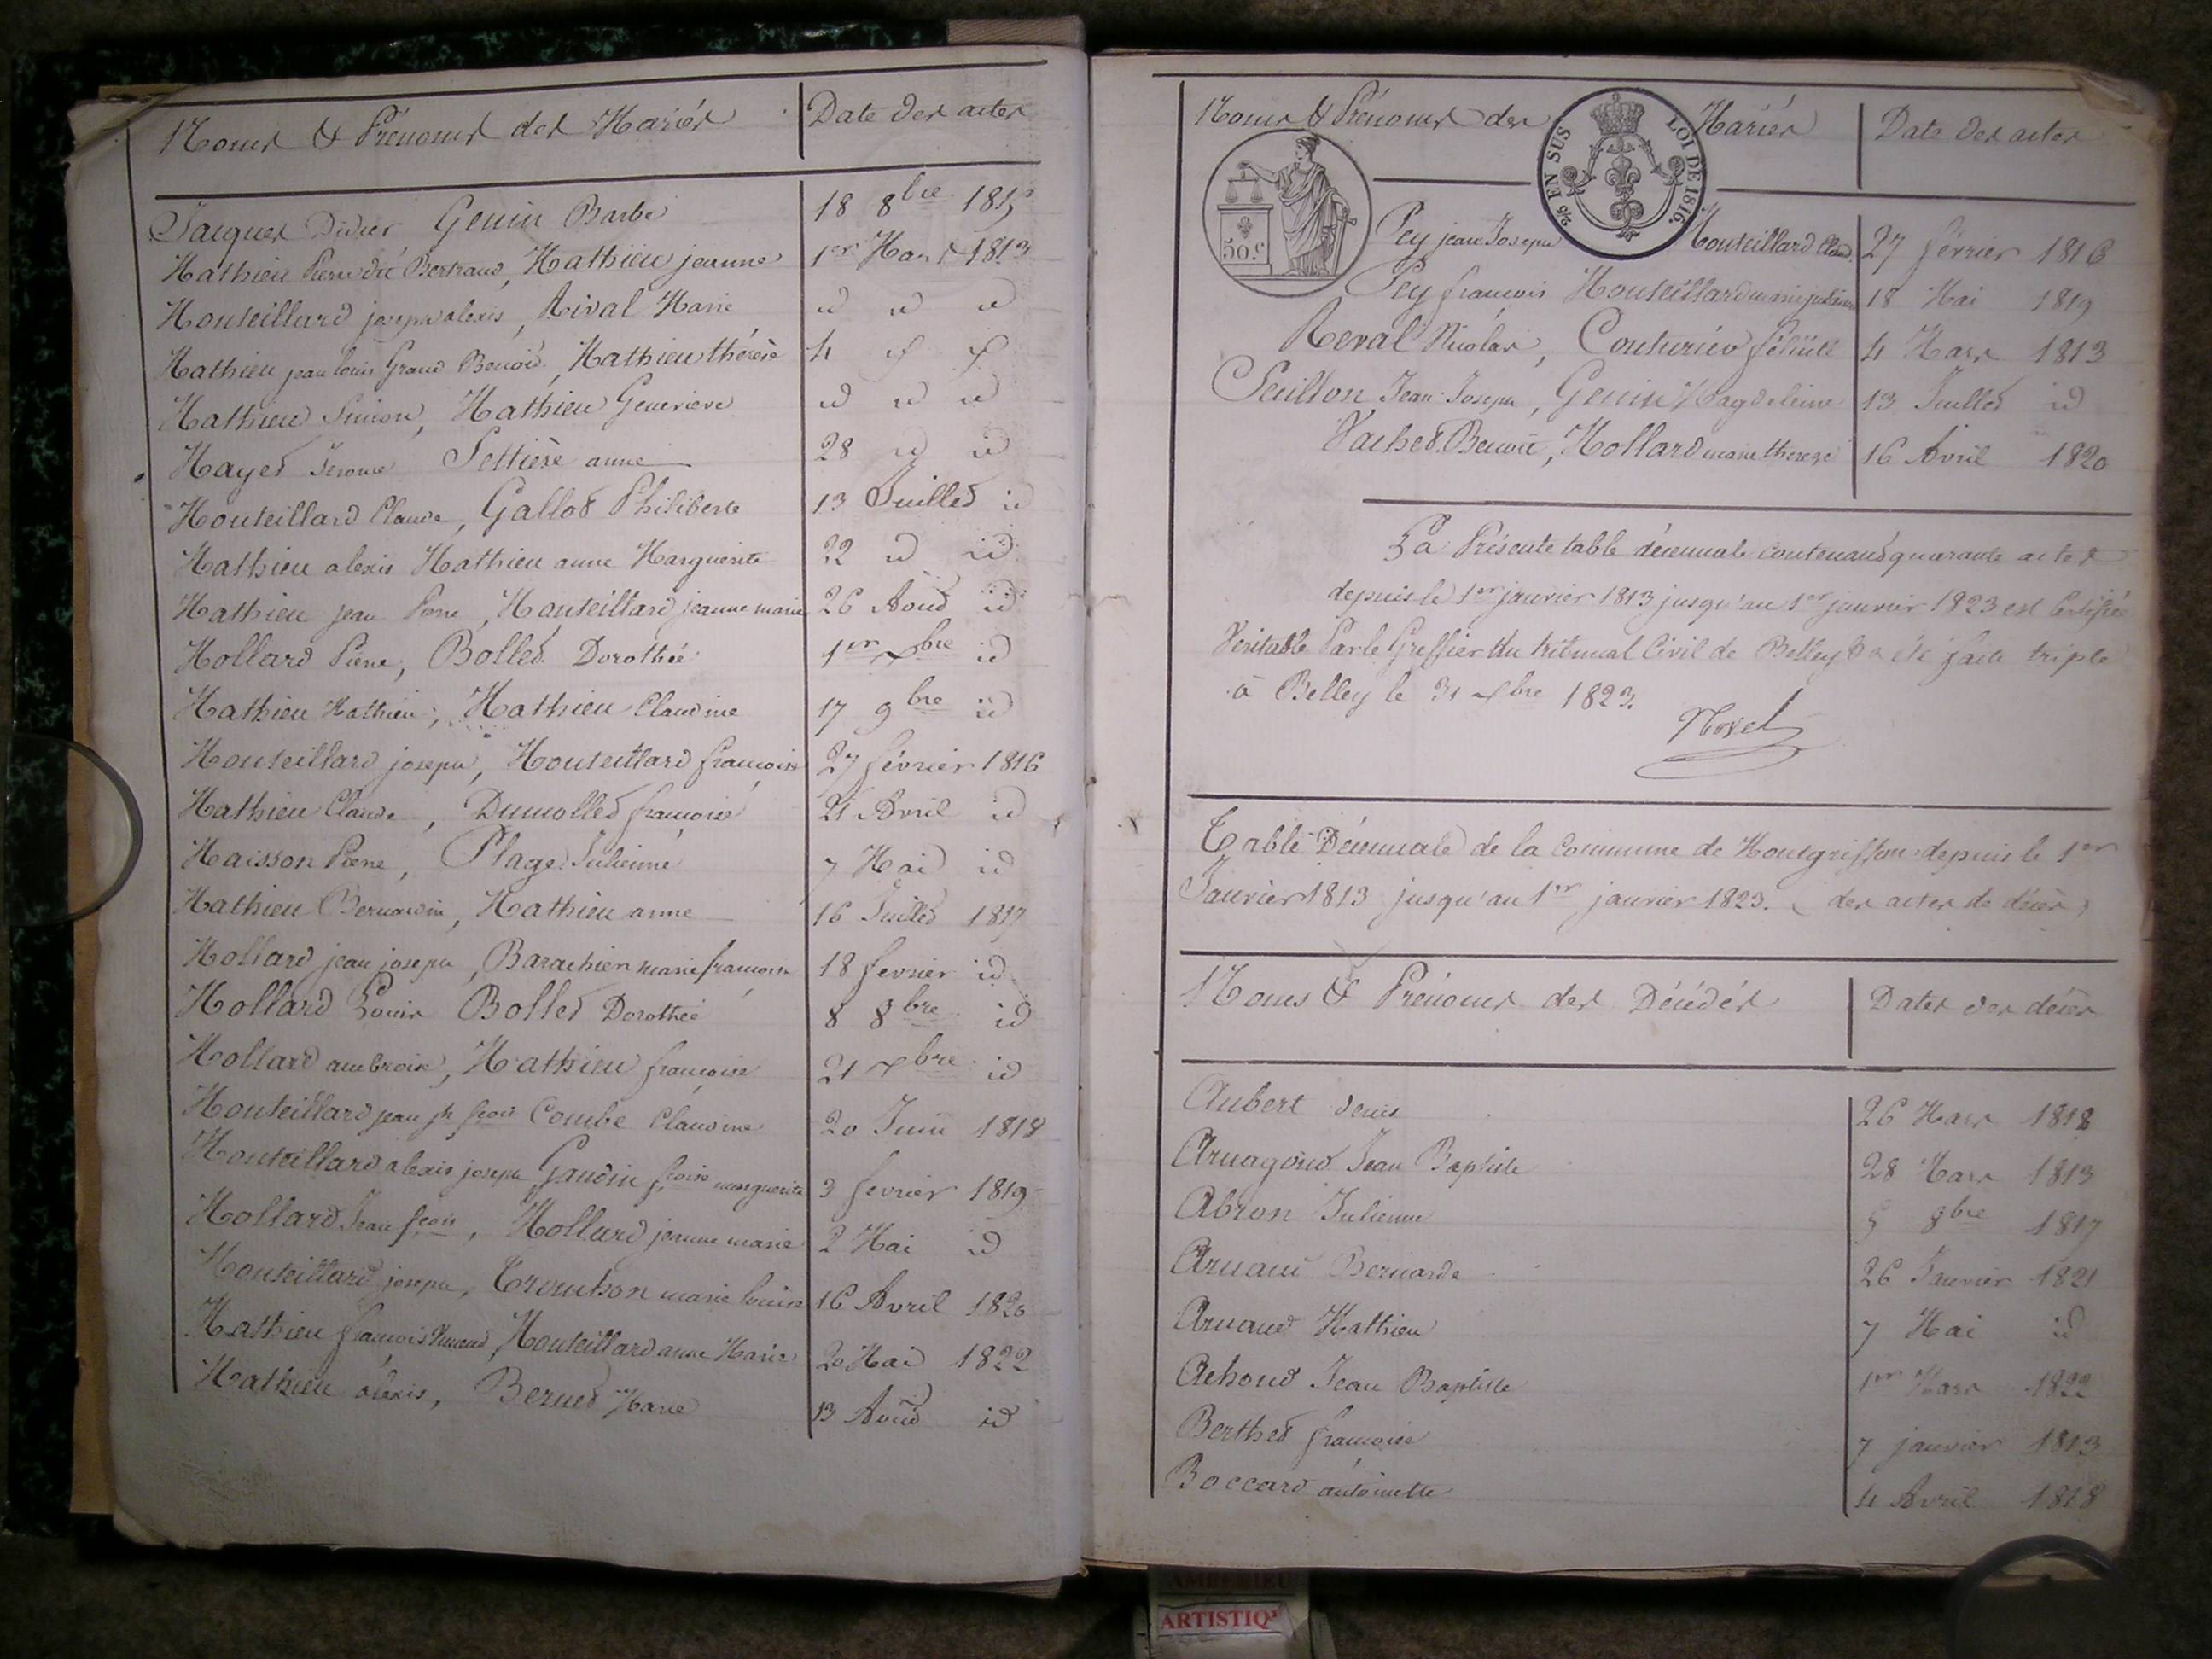 Noms & Prénoms des Mariés Date des actes
Jacques Didier Genin Barbe 18 8bre 1815
Mathieu Pierre dit Bertrand, Mathieu jeanne 1er Mars 1813
Monteillard joseph alexis, Rival Marie id id id
Mathieu jean louis Grand Benoid, Mathieu thérèse 4
Mathieu Simon, Mathieu Genevieve id id id
Mayet Jerome Settière anne 28 id id
Monteillard Claude, Gallod Philiberte 13 Juillet id
Mathieu alexis Mathieu anne Marguerite 22 id id
Mathieu jean Pierre, Monteillard jeanne marie 26 Aoud id
Mollard Pierre, Bollet Dorothée 1er xbre id
Mathieu Mathieu, Mathieu Claudine 17 9bre id
Monteillard joseph, Monteillard françoise 27 février 1816
Mathieu Claude, Dumollet françoise 21 Avril id
Maisson Pierre, Plage Julienne 7 Mai id
Mathieu Bernardin, Mathieu anne 16 Juillet 1817
Mollard jean joseph, Barachien marie françoise 18 fevrier id
Mollard Louis Bollet Dorothée 8 8bre id
Mollard ambroise, Mathieu françoise 21 xbre id
Monteillard jean jh fçois Combe Claudine 20 Juin 1818
Monteillard alexis joseph Gaudin fçoise marguerite 3 fevrier 1819
Mollard Jean fçois, Mollard jeanne marie 2 Mai id
Monteillard joseph, Trouchon marie louise 16 Avril 1820
Mathieu françois Vincend, Monteillard anne Marie 20 Mai 1822
Mathieu alexis, Bernet Marie 13 Aoud id
Noms & Prénoms des Mariés Date des actes
EN SUS LOI DE 1816.
50.c
Pey jean Joseph Monteillard Claud. 27 février 1816
Pey françois Monteillard marie julienne 18 Mai 1819
Reval Nicolas, Couturier félicité 4 Mars 1813
Seuillon Jean Joseph, Genin Magdeleine 13 Juillet id
Vached Benoit, Mollard marie therese 16 Avril 1820
La Présente table décennale contenant quarante actes
depuis le 1er janvier 1813 jusqu'au 1er janvier 1823 est Certifiée
Veritable Par le Greffier du tribunal Civil de Belley & a été faite triple
à Belley le 31 xbre 1823.
Table Décennale de la Commune de Montgriffon depuis le 1er
Janvier 1813 jusqu'au 1er janvier 1823. (des actes de décès)
Noms & Prénoms des Décédés Dates des décès
Aubert denis 26 Mars 1818
Arnagoud Jean Baptiste 28 Mars 1813
Abron Julienne 5 8bre 1817
Arnaud Bernarde 26 Janvier 1821
Arnaud Mathieu 7 Mai id
Achoud Jean Baptiste 1er Mars 1822
Berthet françoise 7 janvier 1813
Boccard antoinette 4 Avril 1818
ARTISTIQ'